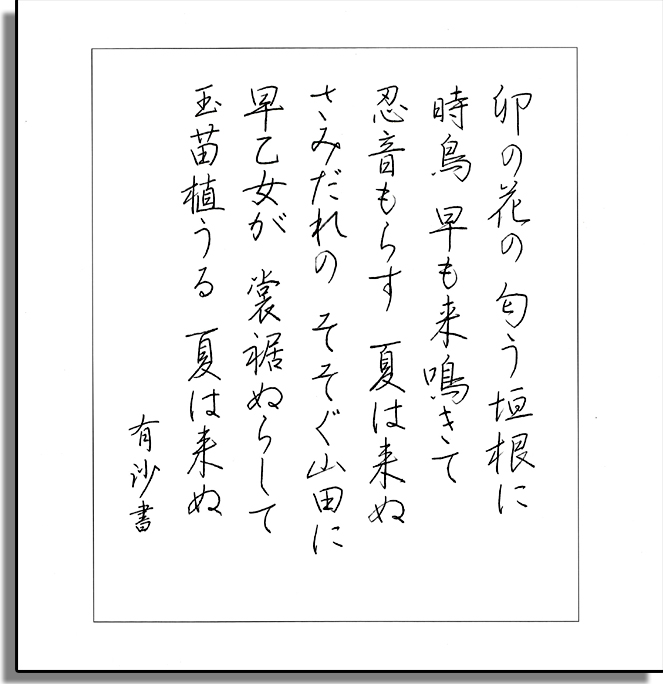 卯の花の 匂う垣根に
時鳥 早も来鳴きて
忍音もらす 夏は来ぬ
さみだれの そそぐ山田に
早乙女が 裳裾ぬらして
玉苗植うる 夏は来ぬ
有沙書